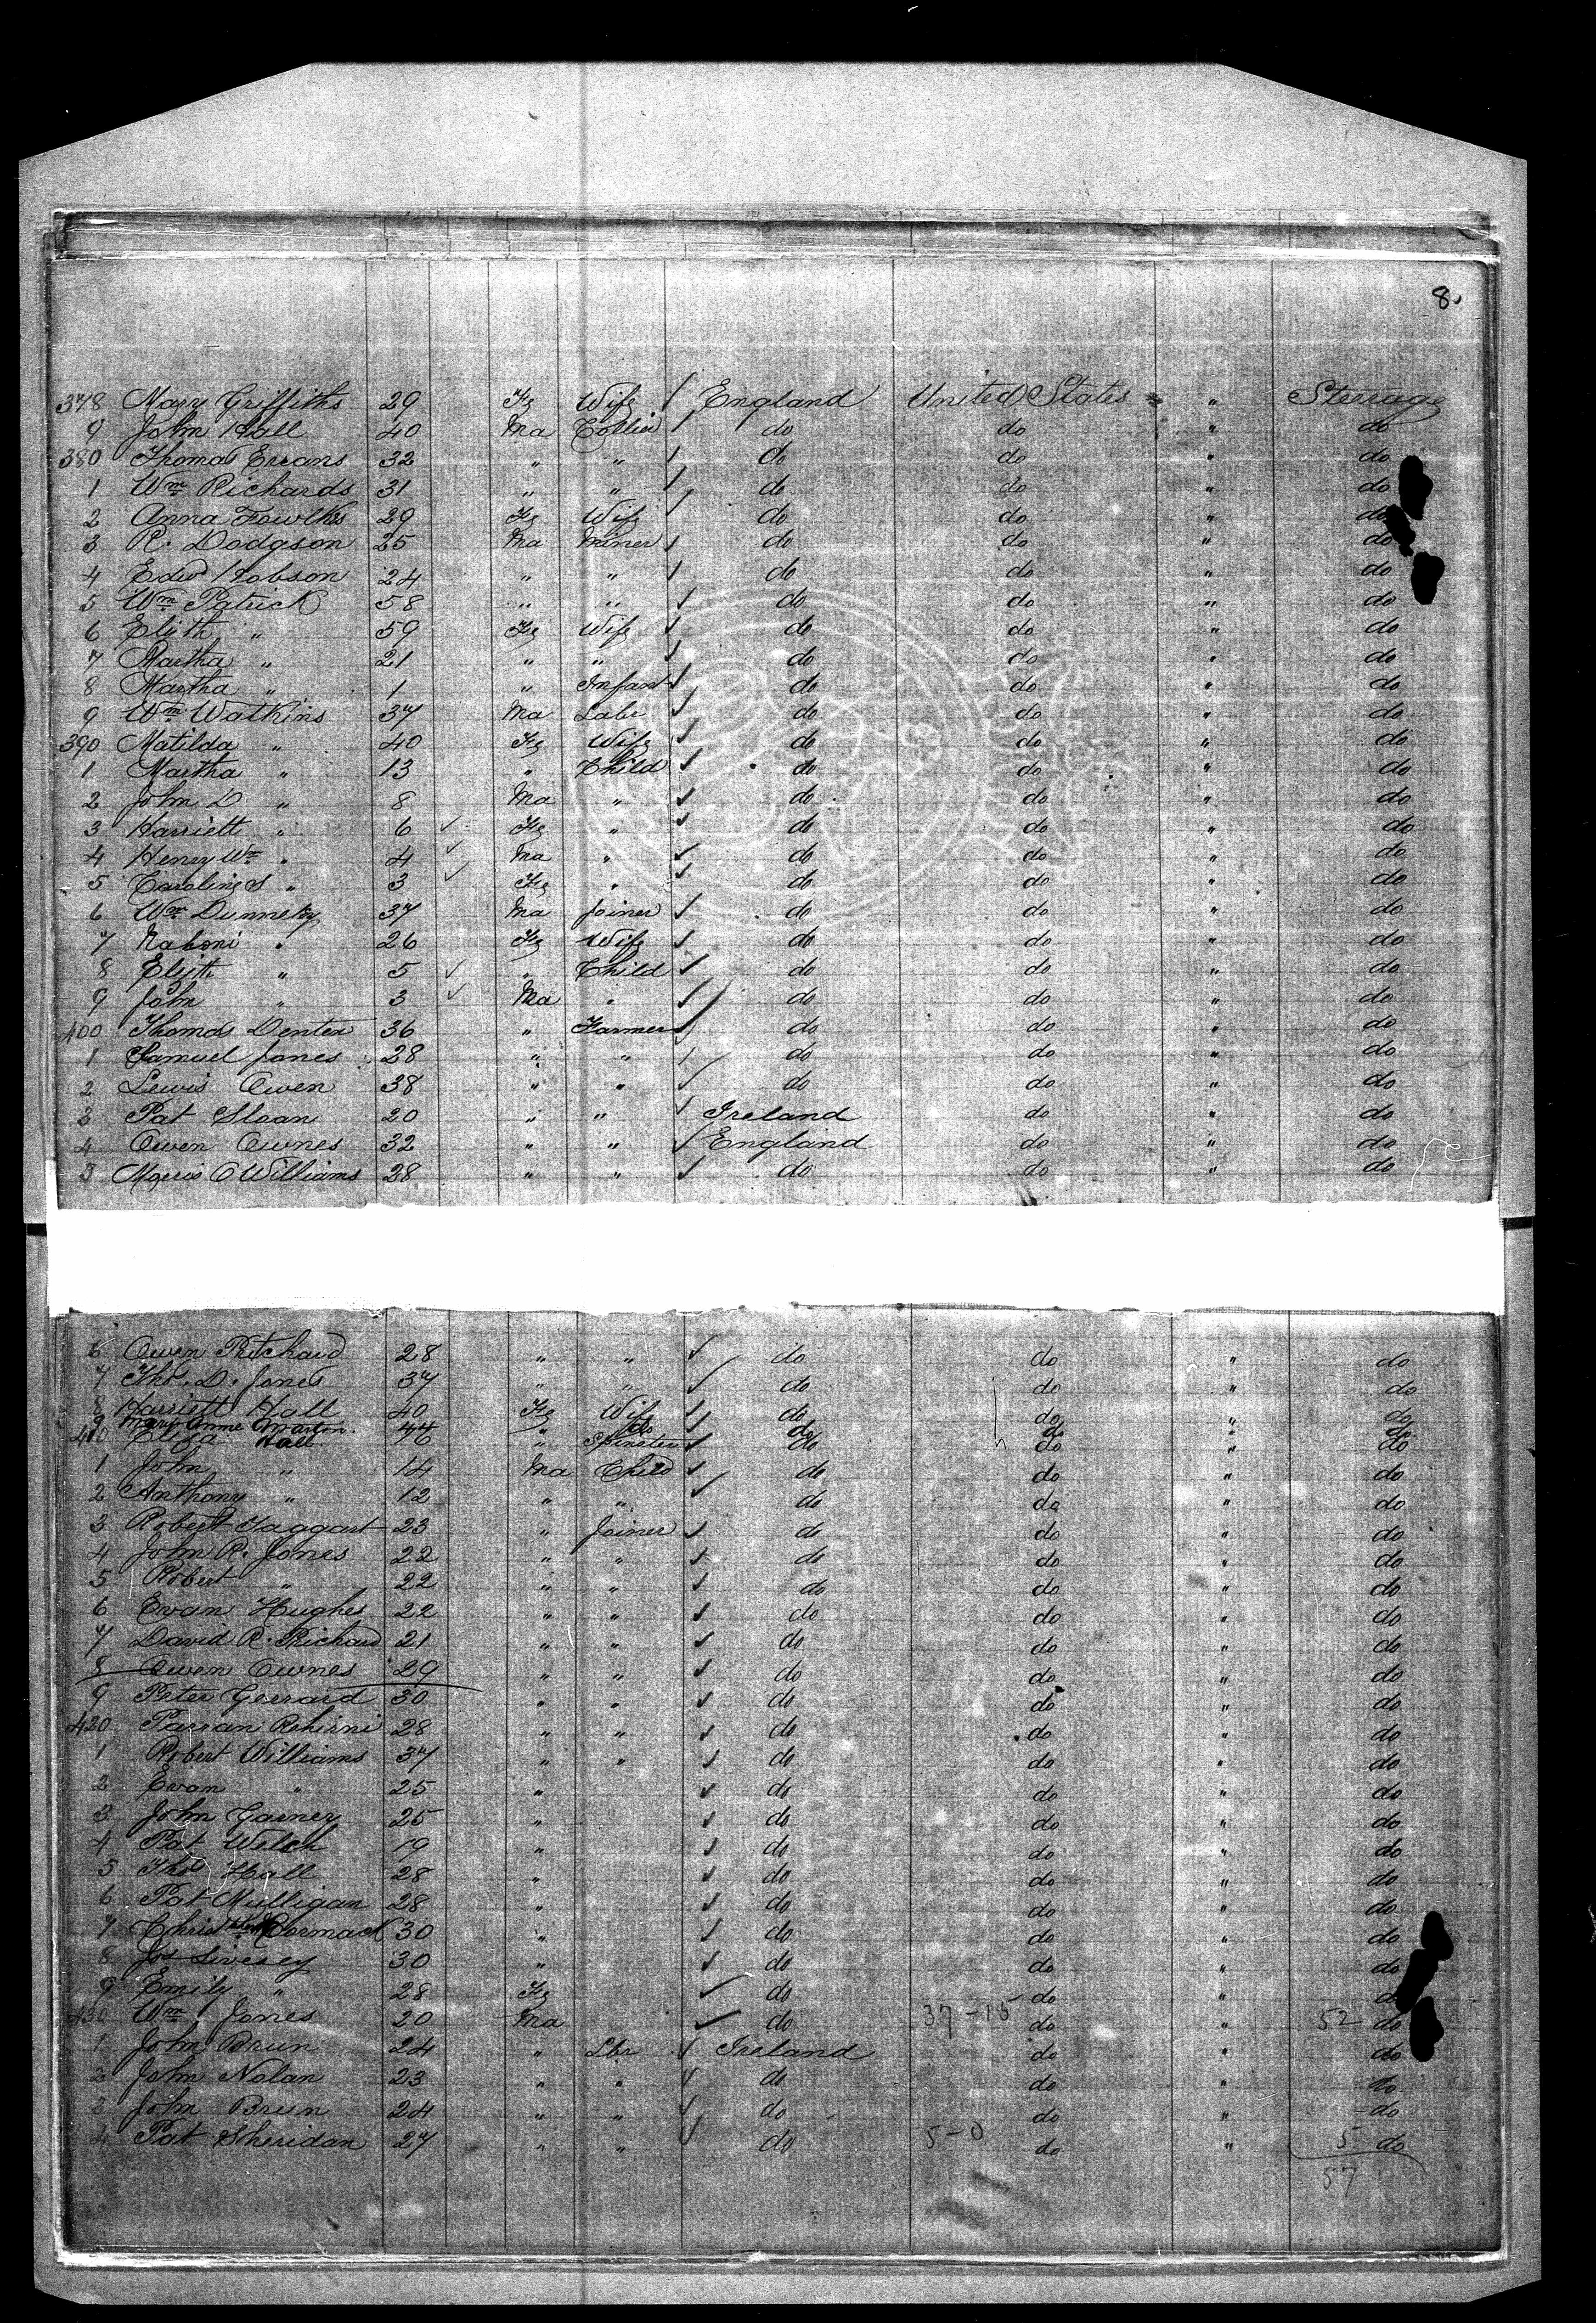 8.
378 Mary Griffiths 29 Fe Wife / England United States " Steerage
9 John Hall 40 Ma Collier / do do " do
380 Thomas Evans 32 " " / do do " do
1 Wm Richards 31 " " / do do " do
2 Anna Fowlkes 29 Fe Wife / do do " do
3 R. Dodgson 25 Ma Miner / do do " do
4 Edwd Hobson 24 " " / do do " do
5 Wm Patrick 58 " " ✓ do do " do
6 Elizth " 59 Fe Wife ✓ do do " do
7 Martha " 21 " " ✓ do do " do
8 Martha " 1 " Infant ✓ do do " do
9 Wm Watkins 37 Ma Labr ✓ do do " do
390 Matilda " 40 Fe Wife ✓ do do " do
1 Martha " 13 " Child ✓ do do " do
2 John D " 8 Ma " ✓ do do " do
3 Harriett " 6 ✓ Fe " ✓ do do " do
4 Henry Wm " 4 ✓ Ma " ✓ do do " do
5 Caroline S " 3 ✓ Fe " ✓ do do " do
6 Wm 37 Ma Joiner ✓ do do " do
7 Naomi " 26 Fe Wife ✓ do do " do
8 Elizth " 5 ✓ " Child ✓ do do " do
9 John " 3 ✓ Ma " ✓ do do " do
400 Thomas Denten 36 " Farmer ✓ do do " do
1 Samuel Jones 28 " " / do do " do
2 Lewis Owen 38 " " ✓ do do " do
3 Pat Sloan 20 " " ✓ Ireland do " do
4 Owen Ownes 32 " " ✓ England do " do
5 O Williams 28 " " ✓ do do " do
6 Owen Pritchard 28 " " ✓ do do " do
7 Thos. D. Jones 37 " " ✓ do do " do
8 Harriett Hall 40 Fe Wife ✓ do do " do
9 Mary Anne Martin 44 " do do do " do
410 Eliza Hall 16 " Spinster ✓ do do " do
1 John " 14 Ma Child ✓ do do " do
2 Anthony " 12 " " ✓ do do " do
3 Robert Taggart 23 " Joiner ✓ do do " do
4 John R. Jones 22 " " ✓ do do " do
5 Robert " 22 " " ✓ do do " do
6 Evan Hughes 22 " " ✓ do do " do
7 David R. Prichard 21 " " ✓ do do " do
8 Owen Ownes 29 " " ✓ do do " do
9 Peter Gerrard 30 " " ✓ do do " do
420 28 " " ✓ do do " do
1 Robert Williams 37 " " ✓ do do " do
2 Evan " 25 " ✓ do do " do
3 John Garner 25 " ✓ do do " do
4 Pat Welch 19 " ✓ do do " do
5 Thos Hall 28 " ✓ do do " do
6 Pat Mulligan 28 " ✓ do do " do
7 Christ McCormack 30 " ✓ do do " do
8 Jos Livesey 30 " ✓ do do " do
9 Emily " 28 Fe ✓ do do " do
430 Wm Jones 20 Ma ✓ do 37-15 do " 52 do
1 John Brun 24 " Lbr ✓ Ireland do " do
2 John Nolan 23 " " ✓ do do " do
3 John Brun 24 " " ✓ do do " do
4 Pat Sheridan 27 " " ✓ do 5-0 do " 5 do
57